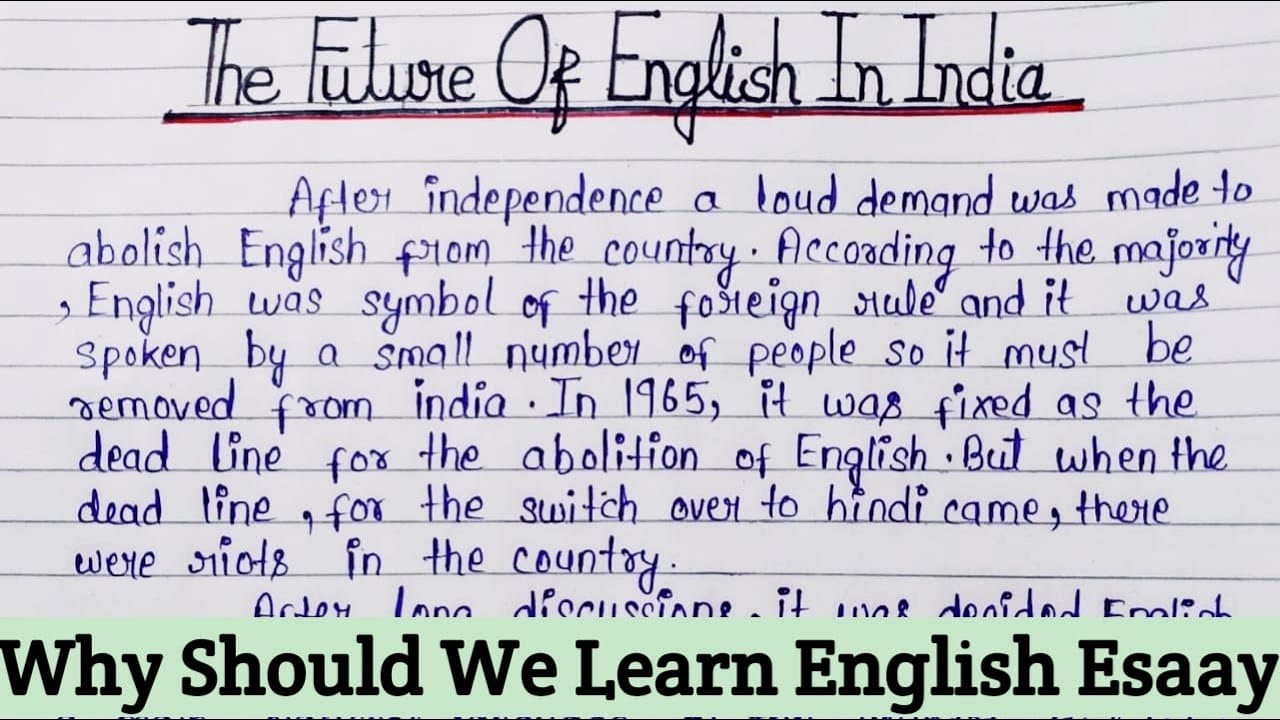 The Future Of English In India
After independence a loud demand was made to
abolish English from the country. According to the majority
, English was symbol of the foreign rule and it was
spoken by a small number of people so it must be
removed from india. In 1965, it was fixed as the
dead line for the abolition of English. But when the
dead line, for the switch over to hindi came, there
were riots in the country.
After long discussions, it was decided English
Why Should We Learn English Esaay